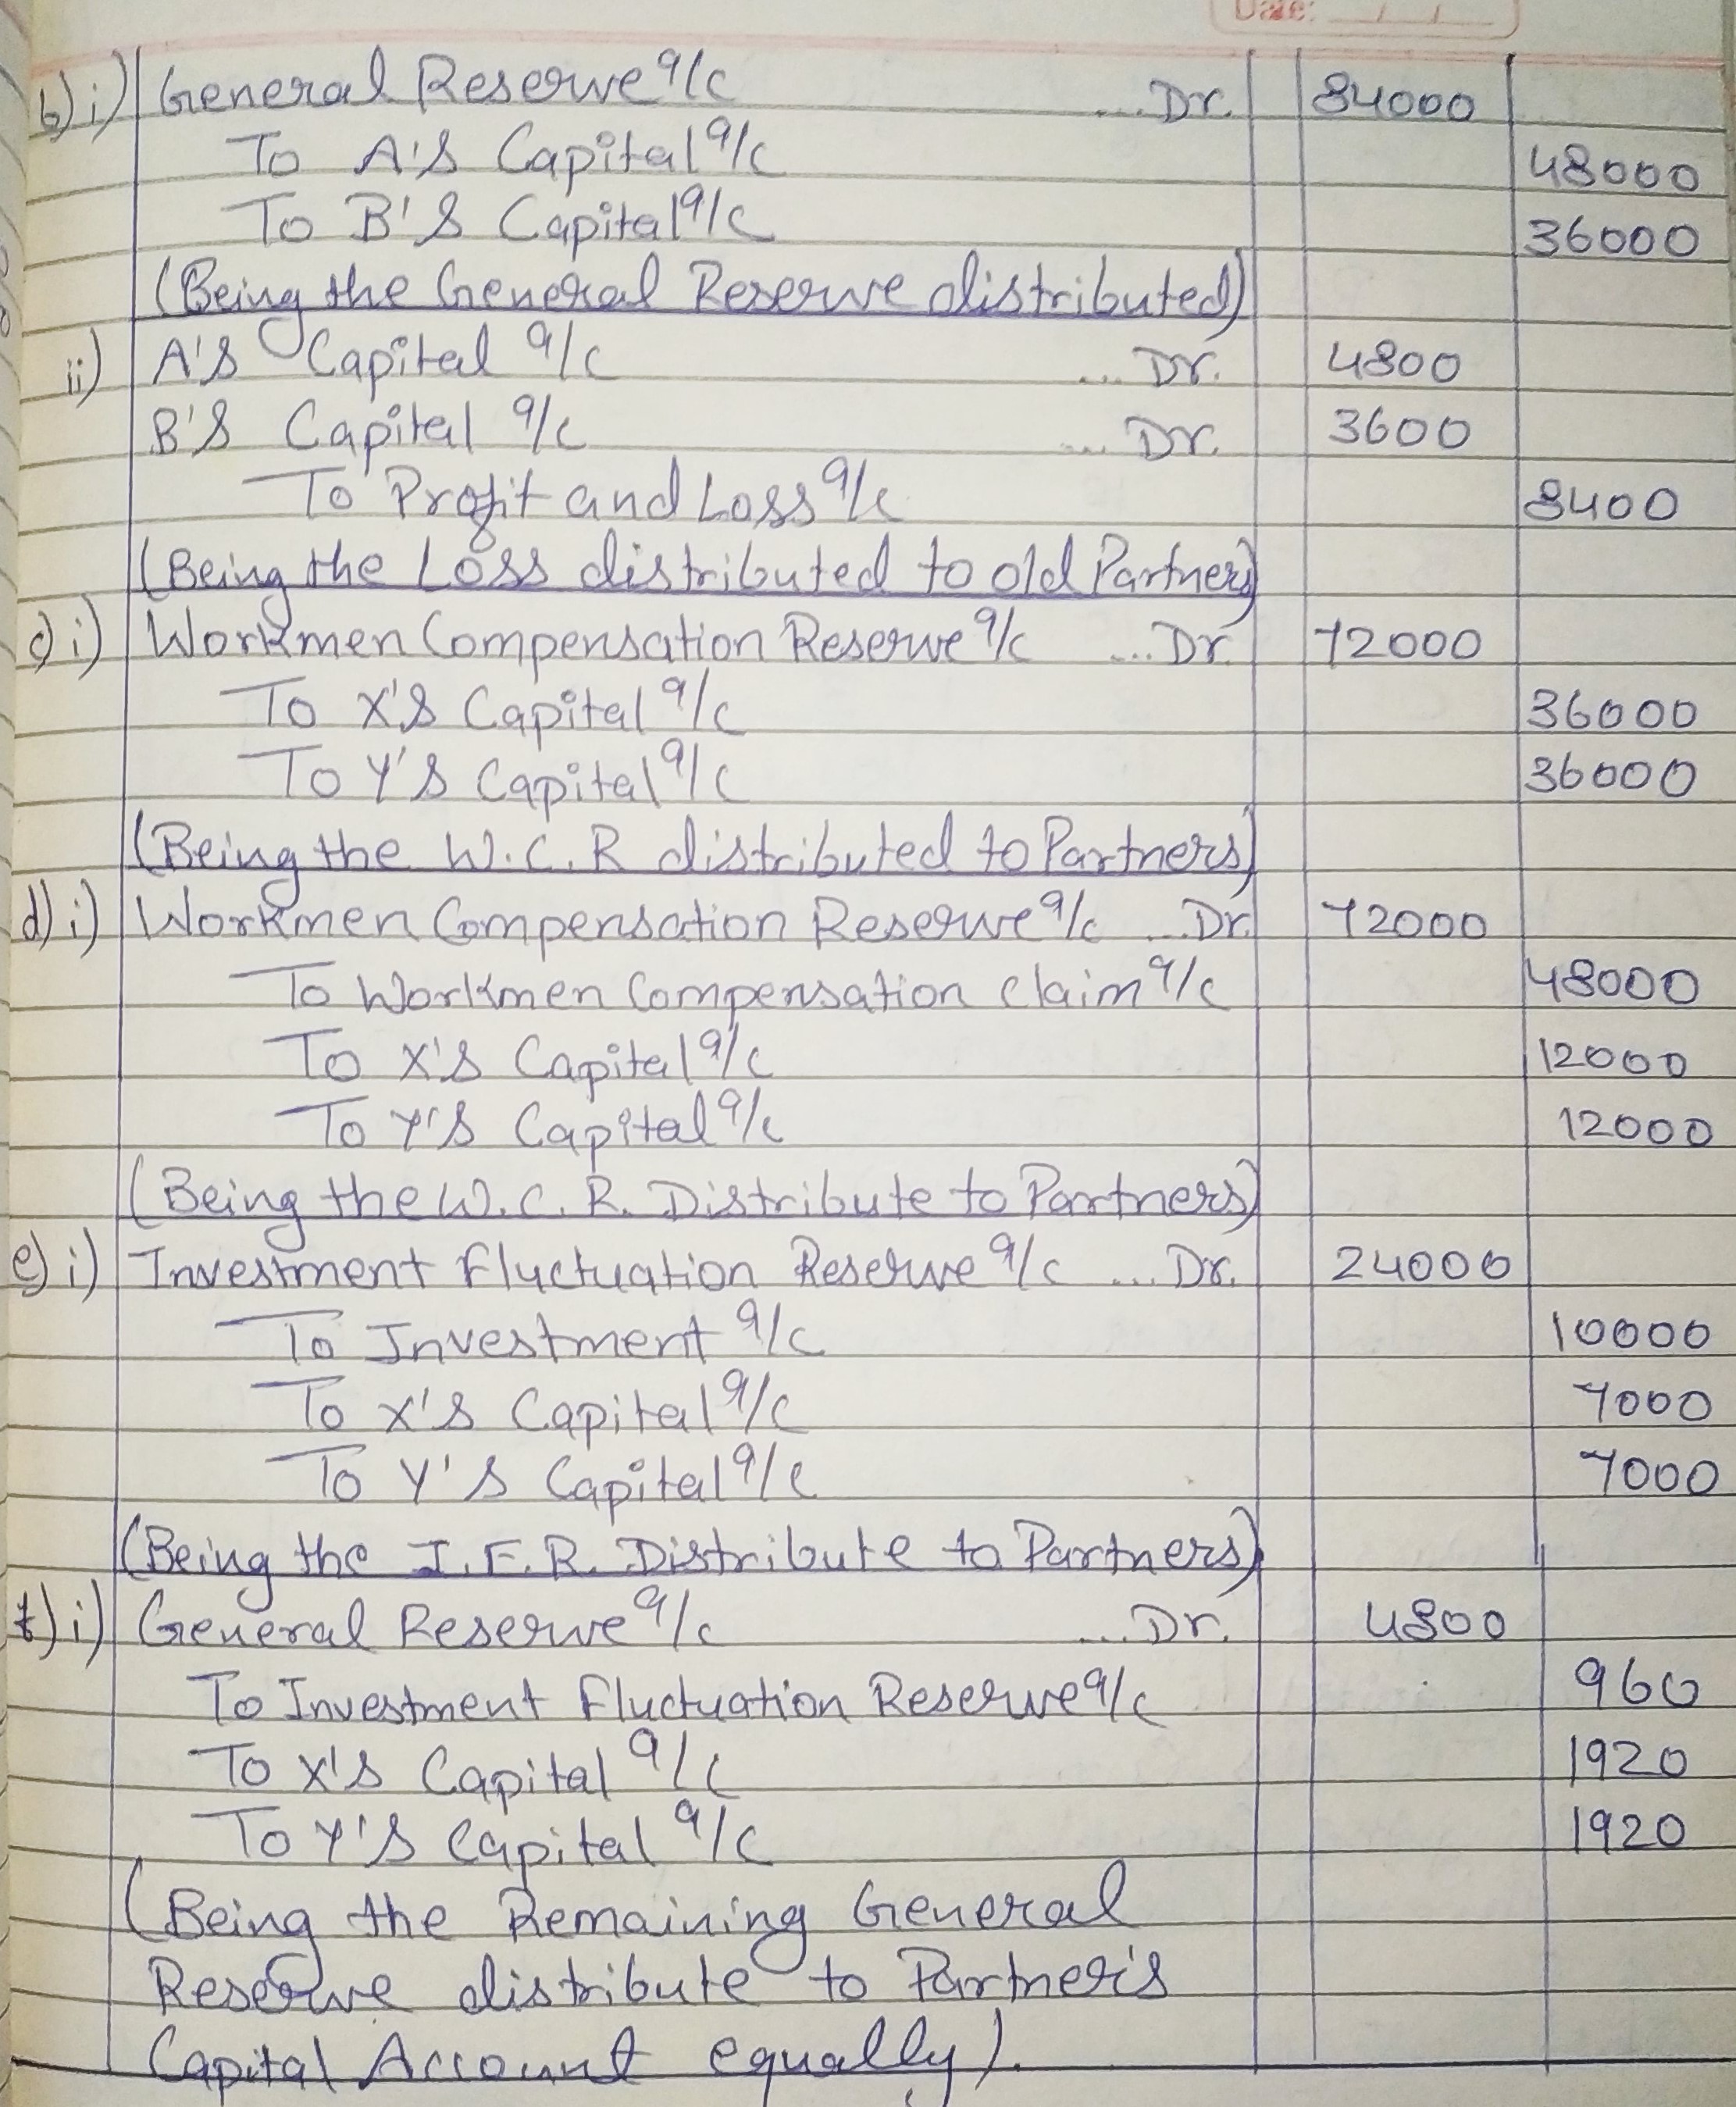 Date: / /
b) i) General Reserve a/c ... Dr. 84000
To A's Capital a/c 48000
To B's Capital a/c 36000
(Being the General Reserve distributed)
ii) A's Capital a/c ... Dr. 4800
B's Capital a/c ... Dr. 3600
To Profit and Loss a/c 8400
(Being the Loss distributed to old Partners)
c) i) Workmen Compensation Reserve a/c ... Dr. 72000
To X's Capital a/c 36000
To Y's Capital a/c 36000
(Being the W.C.R distributed to Partners)
d) i) Workmen Compensation Reserve a/c ... Dr. 72000
To Workmen Compensation Claim a/c 48000
To X's Capital a/c 12000
To Y's Capital a/c 12000
(Being the W.C.R. Distribute to Partners)
e) i) Investment Fluctuation Reserve a/c ... Dr. 24000
To Investment a/c 10000
To X's Capital a/c 7000
To Y's Capital a/c 7000
(Being the I.F.R. Distribute to Partners)
f) i) General Reserve a/c ... Dr. 4800
To Investment Fluctuation Reserve a/c 960
To X's Capital a/c 1920
To Y's Capital a/c 1920
(Being the Remaining General
Reserve distribute to Partner's
Capital Account equally).